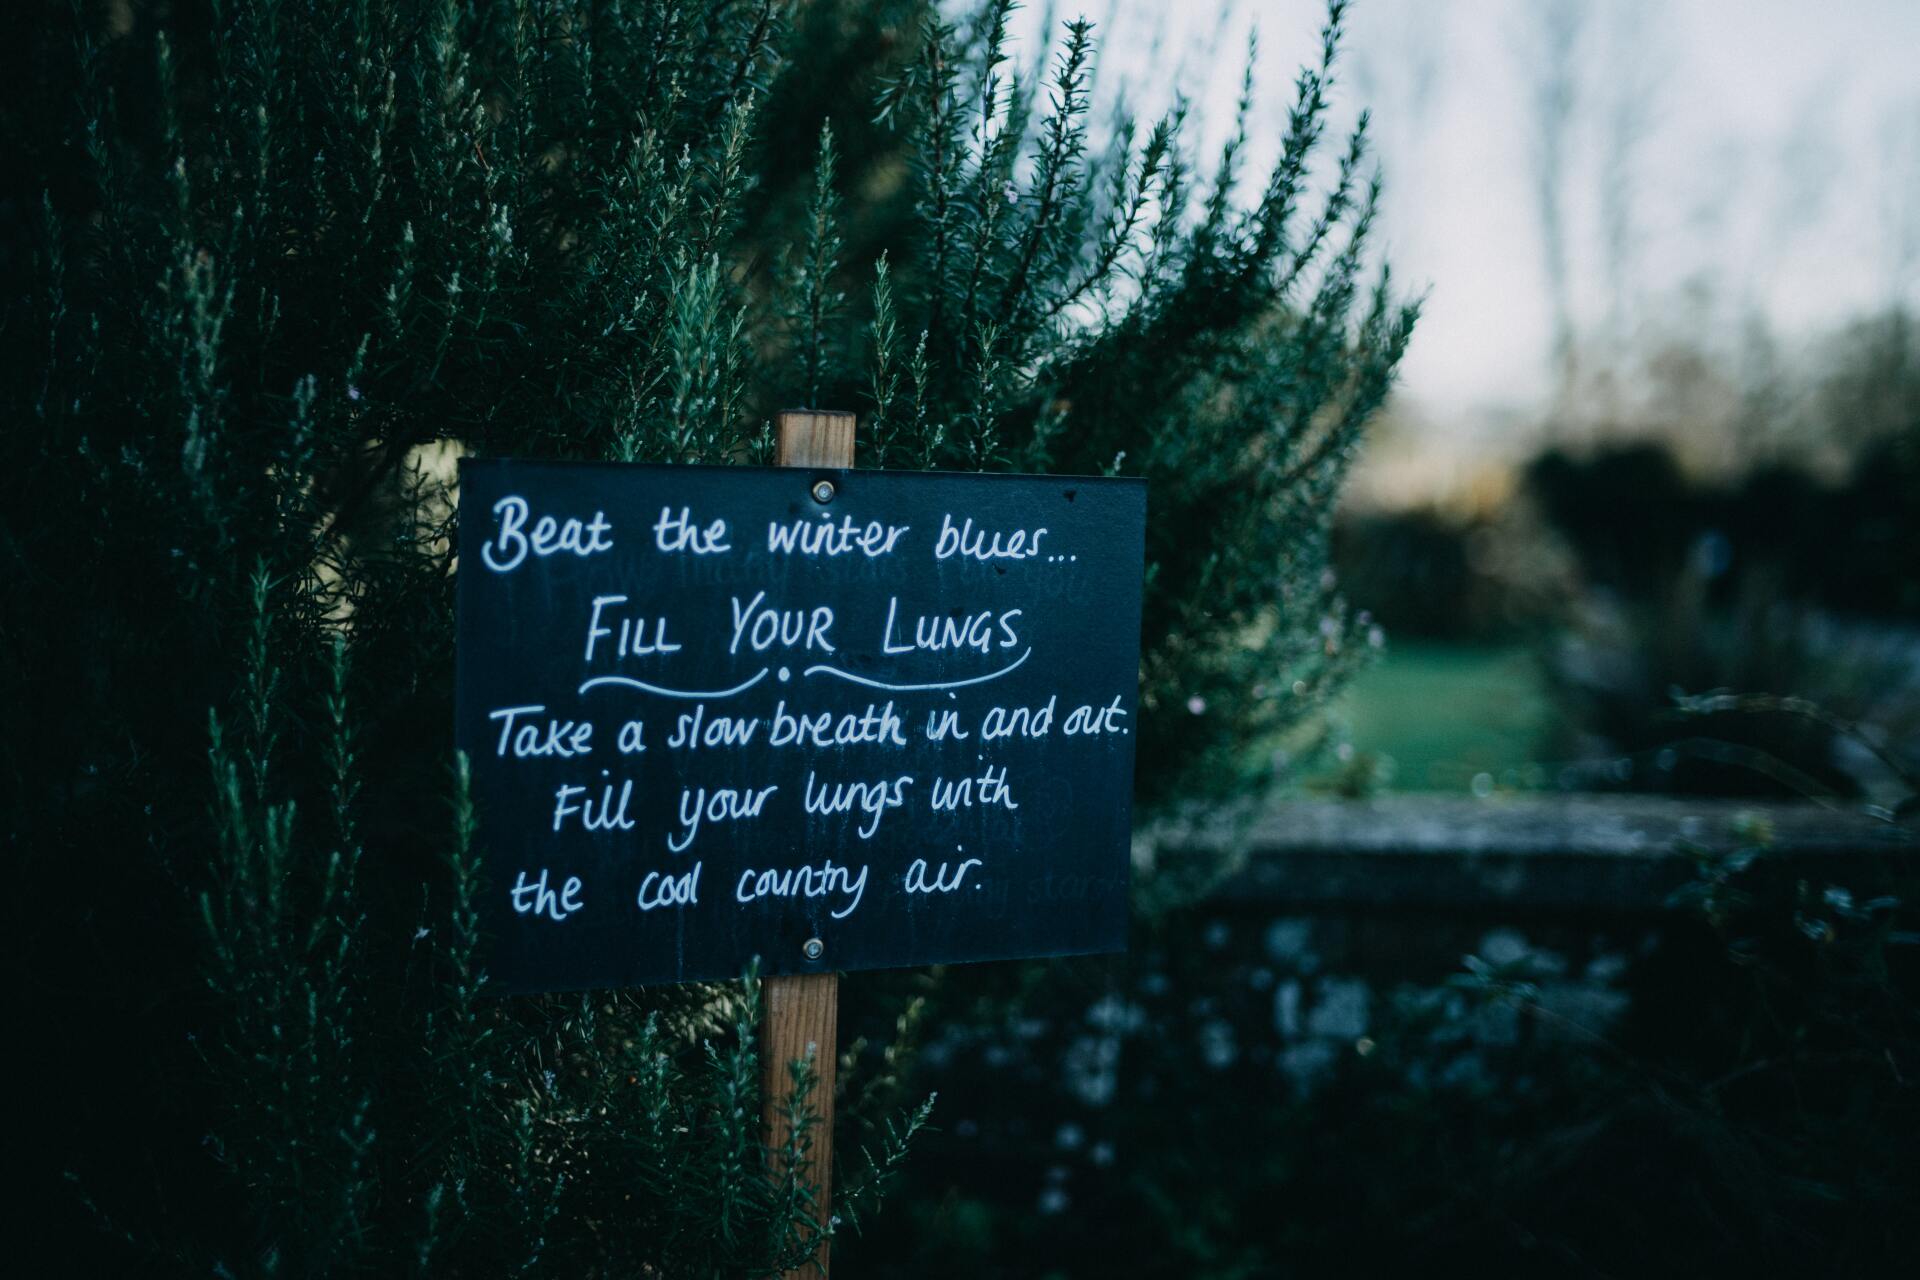 Beat the winter blues...
FILL YOUR LUNGS
Take a slow breath in and out.
Fill your lungs with
the cool country air.